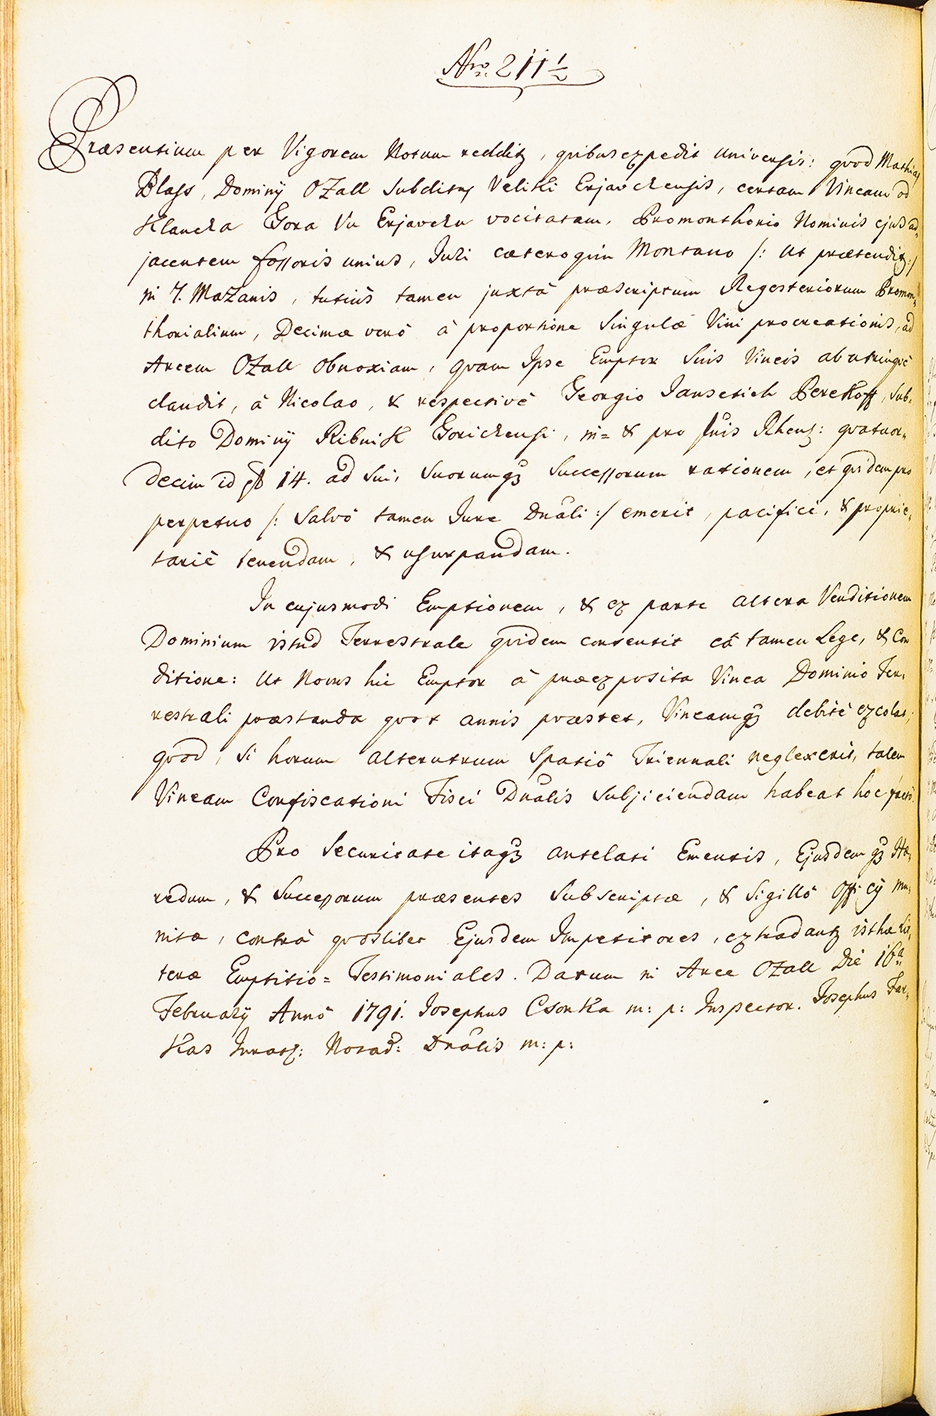 Nro. 211½
Præsentium per Vigorem Notum redditz, quibus expedit universis: quod Mathias
Blass, Dominÿ Ozall Subditus Veliki Erjavchensis, certam Vineam od
Klancza Gora Vu Erjavchu vocitatam, Promonthorio Nominis ejusd ad,
jacentem fossoris unius, Juri cæteroquin Montano /: Ut prætenditz :/
in 7. Mazanis, tutius tamen juxtà præscriptum Regesteriorum Promon,
thorialium, Decimæ verò à proportione Singulæ Vini procreationis, ad
Arcem Ozall obnoxiam, quam Ipse Emptor Suis Vineis ab utrinque
claudit, à Nicolao, & respectivè Georgio Jansetich Perekoff, Sub,
dito Dominÿ Ribnik Gorichensi, in= & pro fnis Rhens: quatuor,
decim id est 14. ad Sui, Suorumq Successorum rationem, et quidem pro
perpetuo /: Salvô tamen Jure Dnali :/ emerit, pacifici, & proprie,
tariè tenendam, & usurpandam.
In cujusmodi Emptionem, & ex parte altera Venditionem
Dominium istud Terrestrale quidem consensit eâ tamen Lege, & Con
ditione: Ut Novus hic Emptor à præexposita Vinea Dominio Ter,
restrali præstanda quot annis præstet, Vineamq debitè excolat.
quod, si horum alterutrum Spatiô Triennali neglexerit, talem
Vineam Confiscationi Fisci Dnalis Subjiciendam habeat hoc facto.
Pro Securitate itaq antelati Ementis, Ejusdemq Hæ,
redum, & Successorum præsentes Subscriptæ, & Sigillô Officÿ mu,
nitæ, contrà quoslibet Ejusdem Impetitores, extradantz isthæ lit,
teræ Emptitio= Testimoniales. Datum in Arce Ozall Die 16a
Februarÿ Annô 1791. Josephus Csonka m: p: Inspector. Josephus Far,
kas Juratq: Notaq: Dnalis m: p: